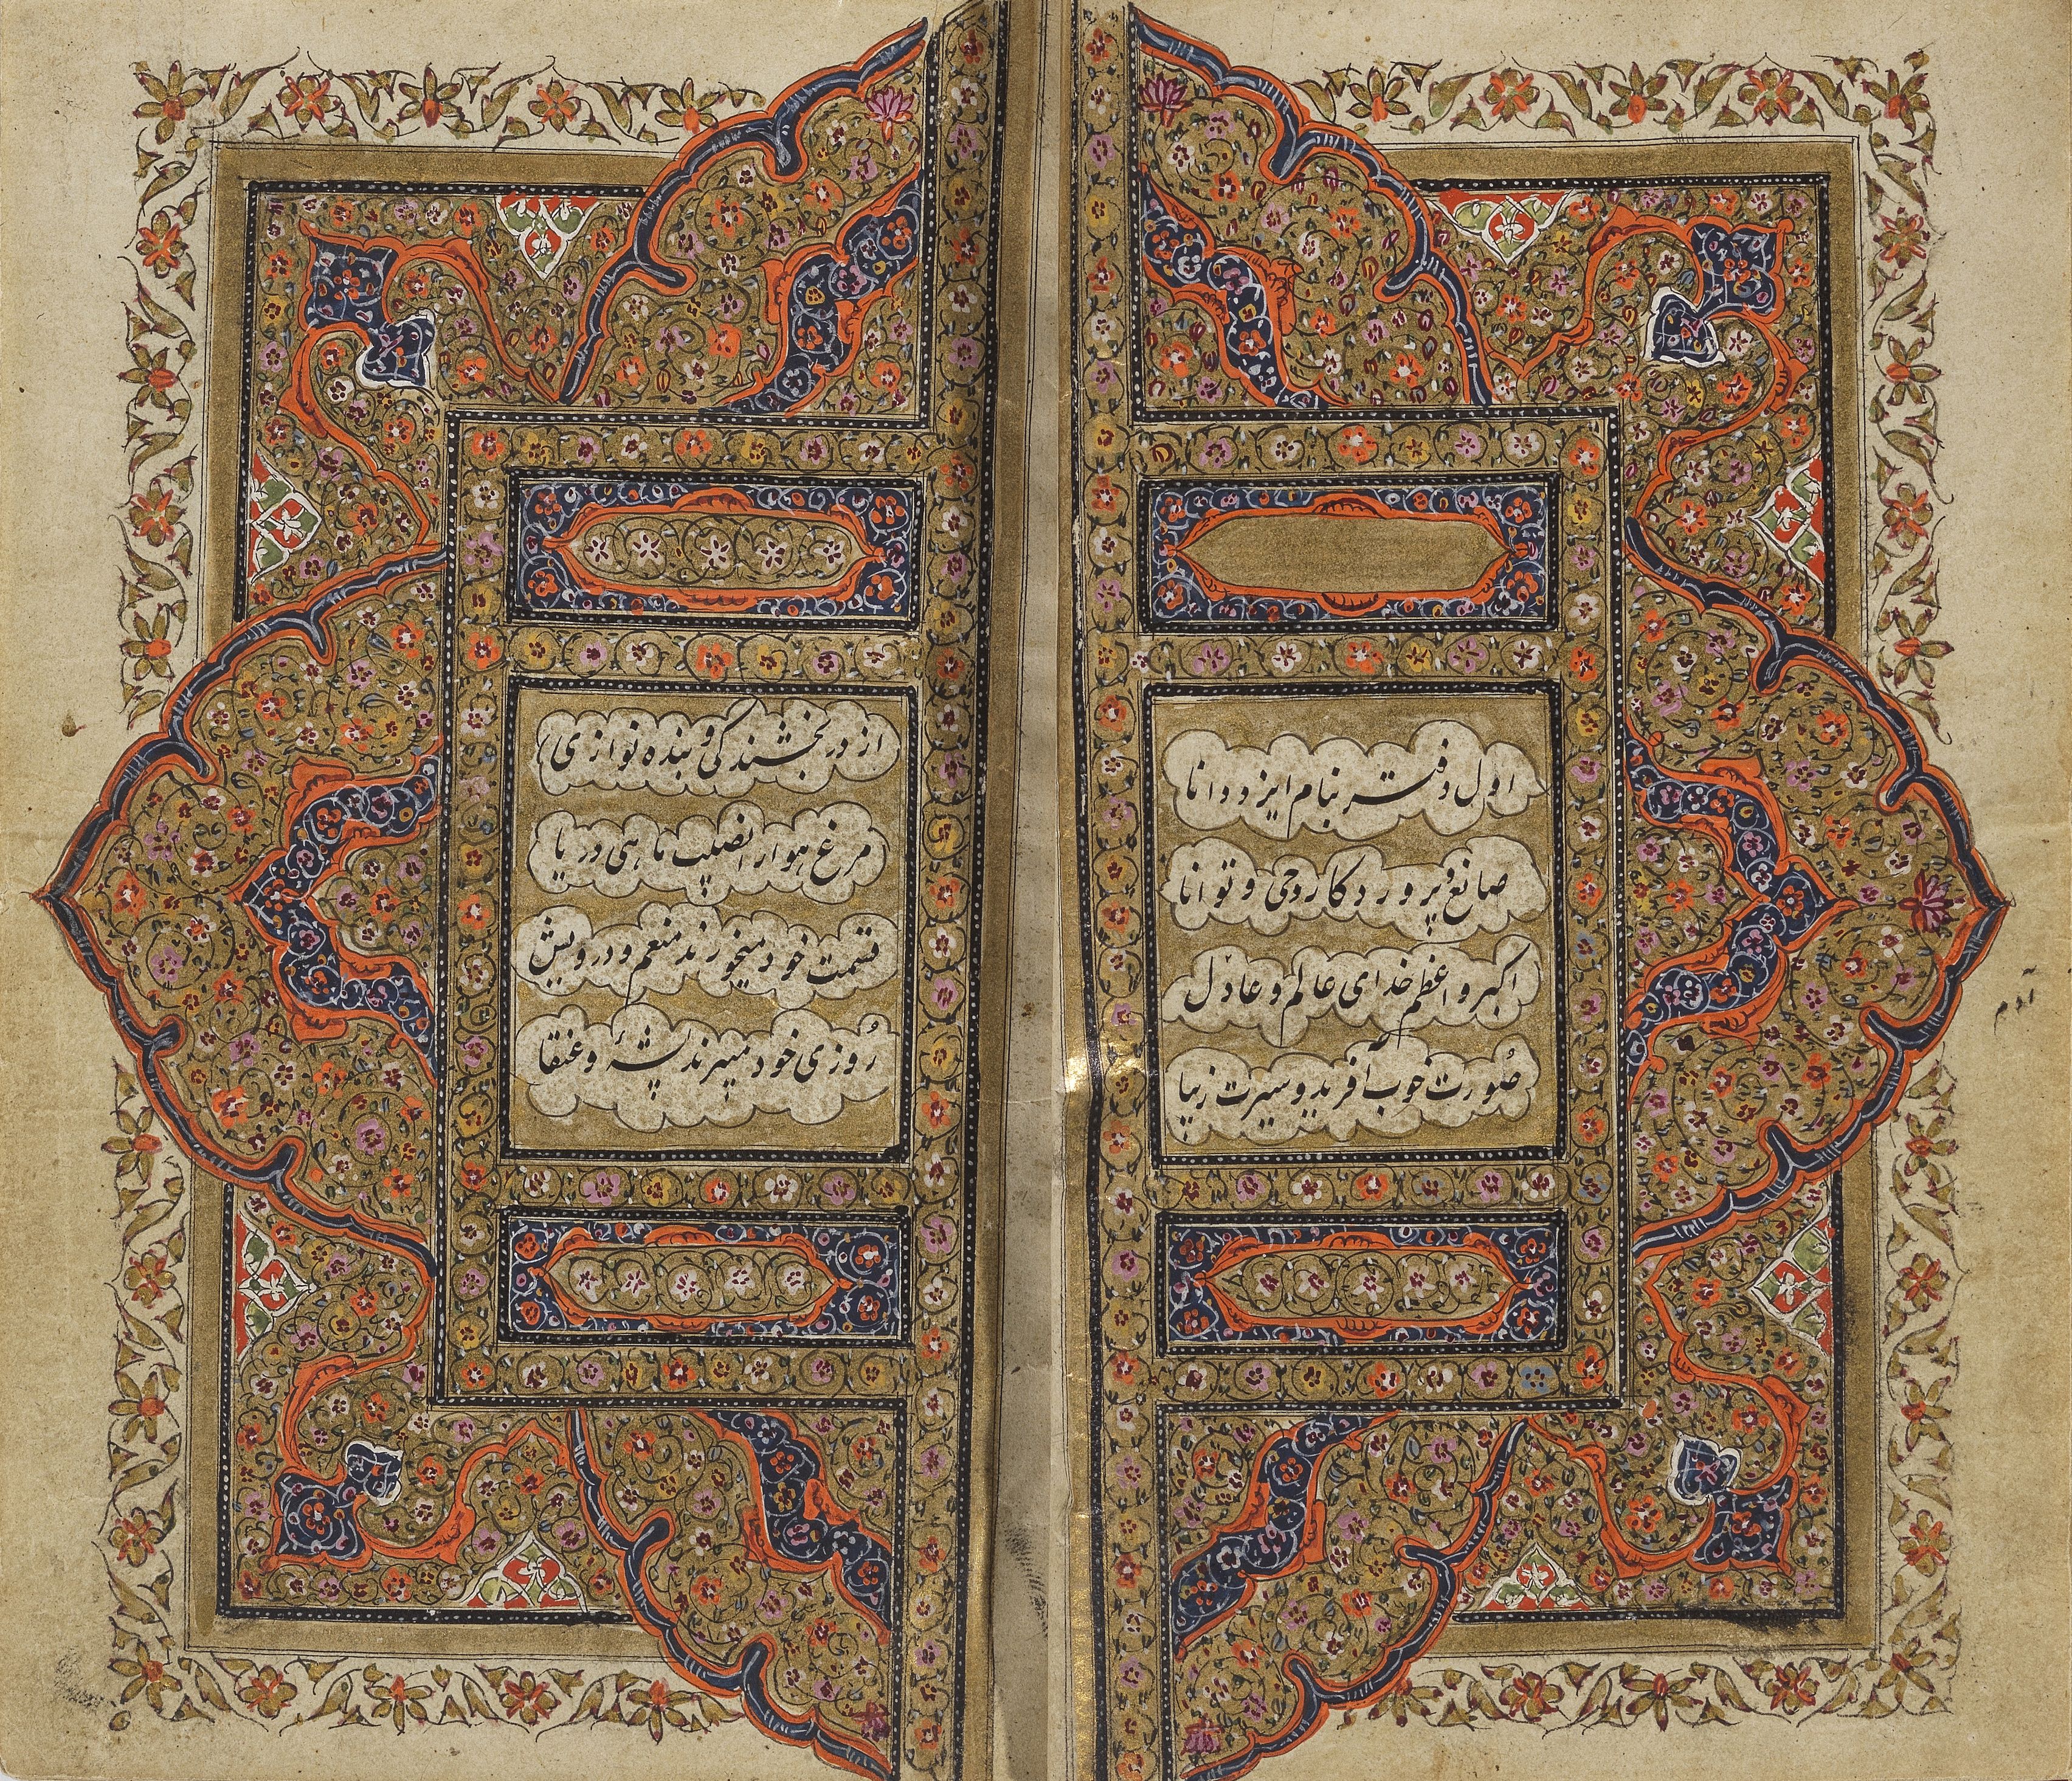 اول دفتر بنام ایزد دانا
صانع و پروردکار حی و توانا
اکبر و اعظم خدای عالم و عادل
صُورت خوب آفرید و سیرت زیبا
آدم
از در بخشندکی و بنده نوازی
مرغ هوا را نصیب ماهی دریا
قسمت خود میخورند منعم و درویش
رُوزی خود میبرند پشۀ و عنقا